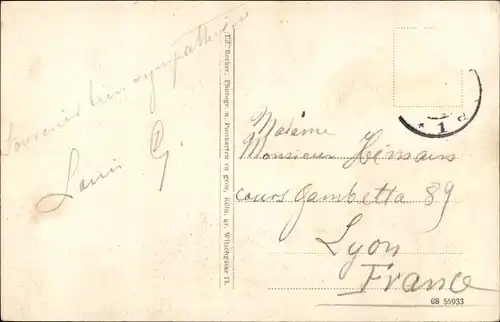 Souvenir bien sympathique
Louis G.
Ed. Becker, Photogr. u. Postkarten en gros, Köln, gr. Witschgasse 11.
* 1 d
Madame
Monsieur
cours Gambetta 89
Lyon
France
GB 55933